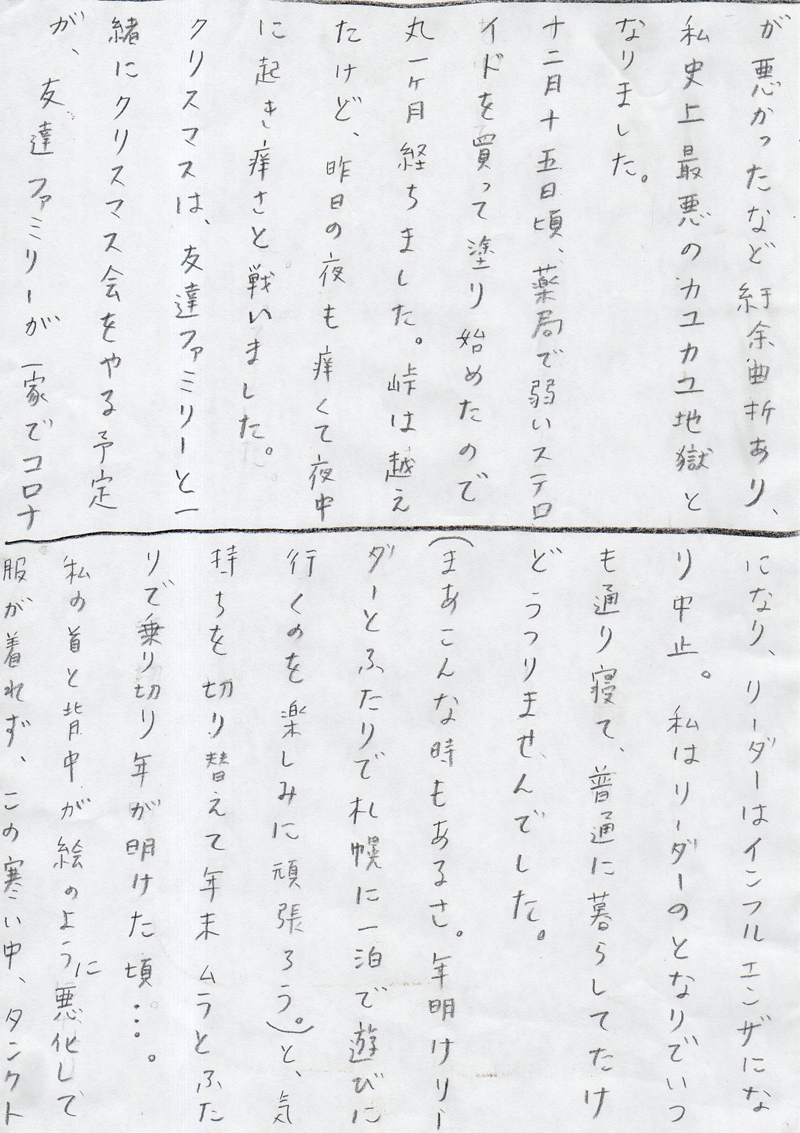 が悪かったなど紆余曲折あり、
私史上最悪のカユカユ地獄と
なりました。
十二月十五日頃、薬局で弱いステロ
イドを買って塗り始めたので
丸一ヶ月経ちました。峠は越え
たけど、昨日の夜も痒くて夜中
に起き痒さと戦いました。
クリスマスは、友達ファミリーと一
緒にクリスマス会をやる予定
が、友達ファミリーが一家でコロナ
になり、リーダーはインフルエンザにな
り中止。私はリーダーのとなりでいつ
も通り寝て、普通に暮らしてたけ
どうつりませんでした。
(まあこんな時もあるさ。年明けリー
ダーとふたりで札幌に一泊で遊びに
行くのを楽しみに頑張ろう。)と、気
持ちを切り替えて年末ムラとふた
りで乗り切り年が明けた頃…。
私の首と背中が絵のように悪化して
服が着れず、この寒い中、タンクト